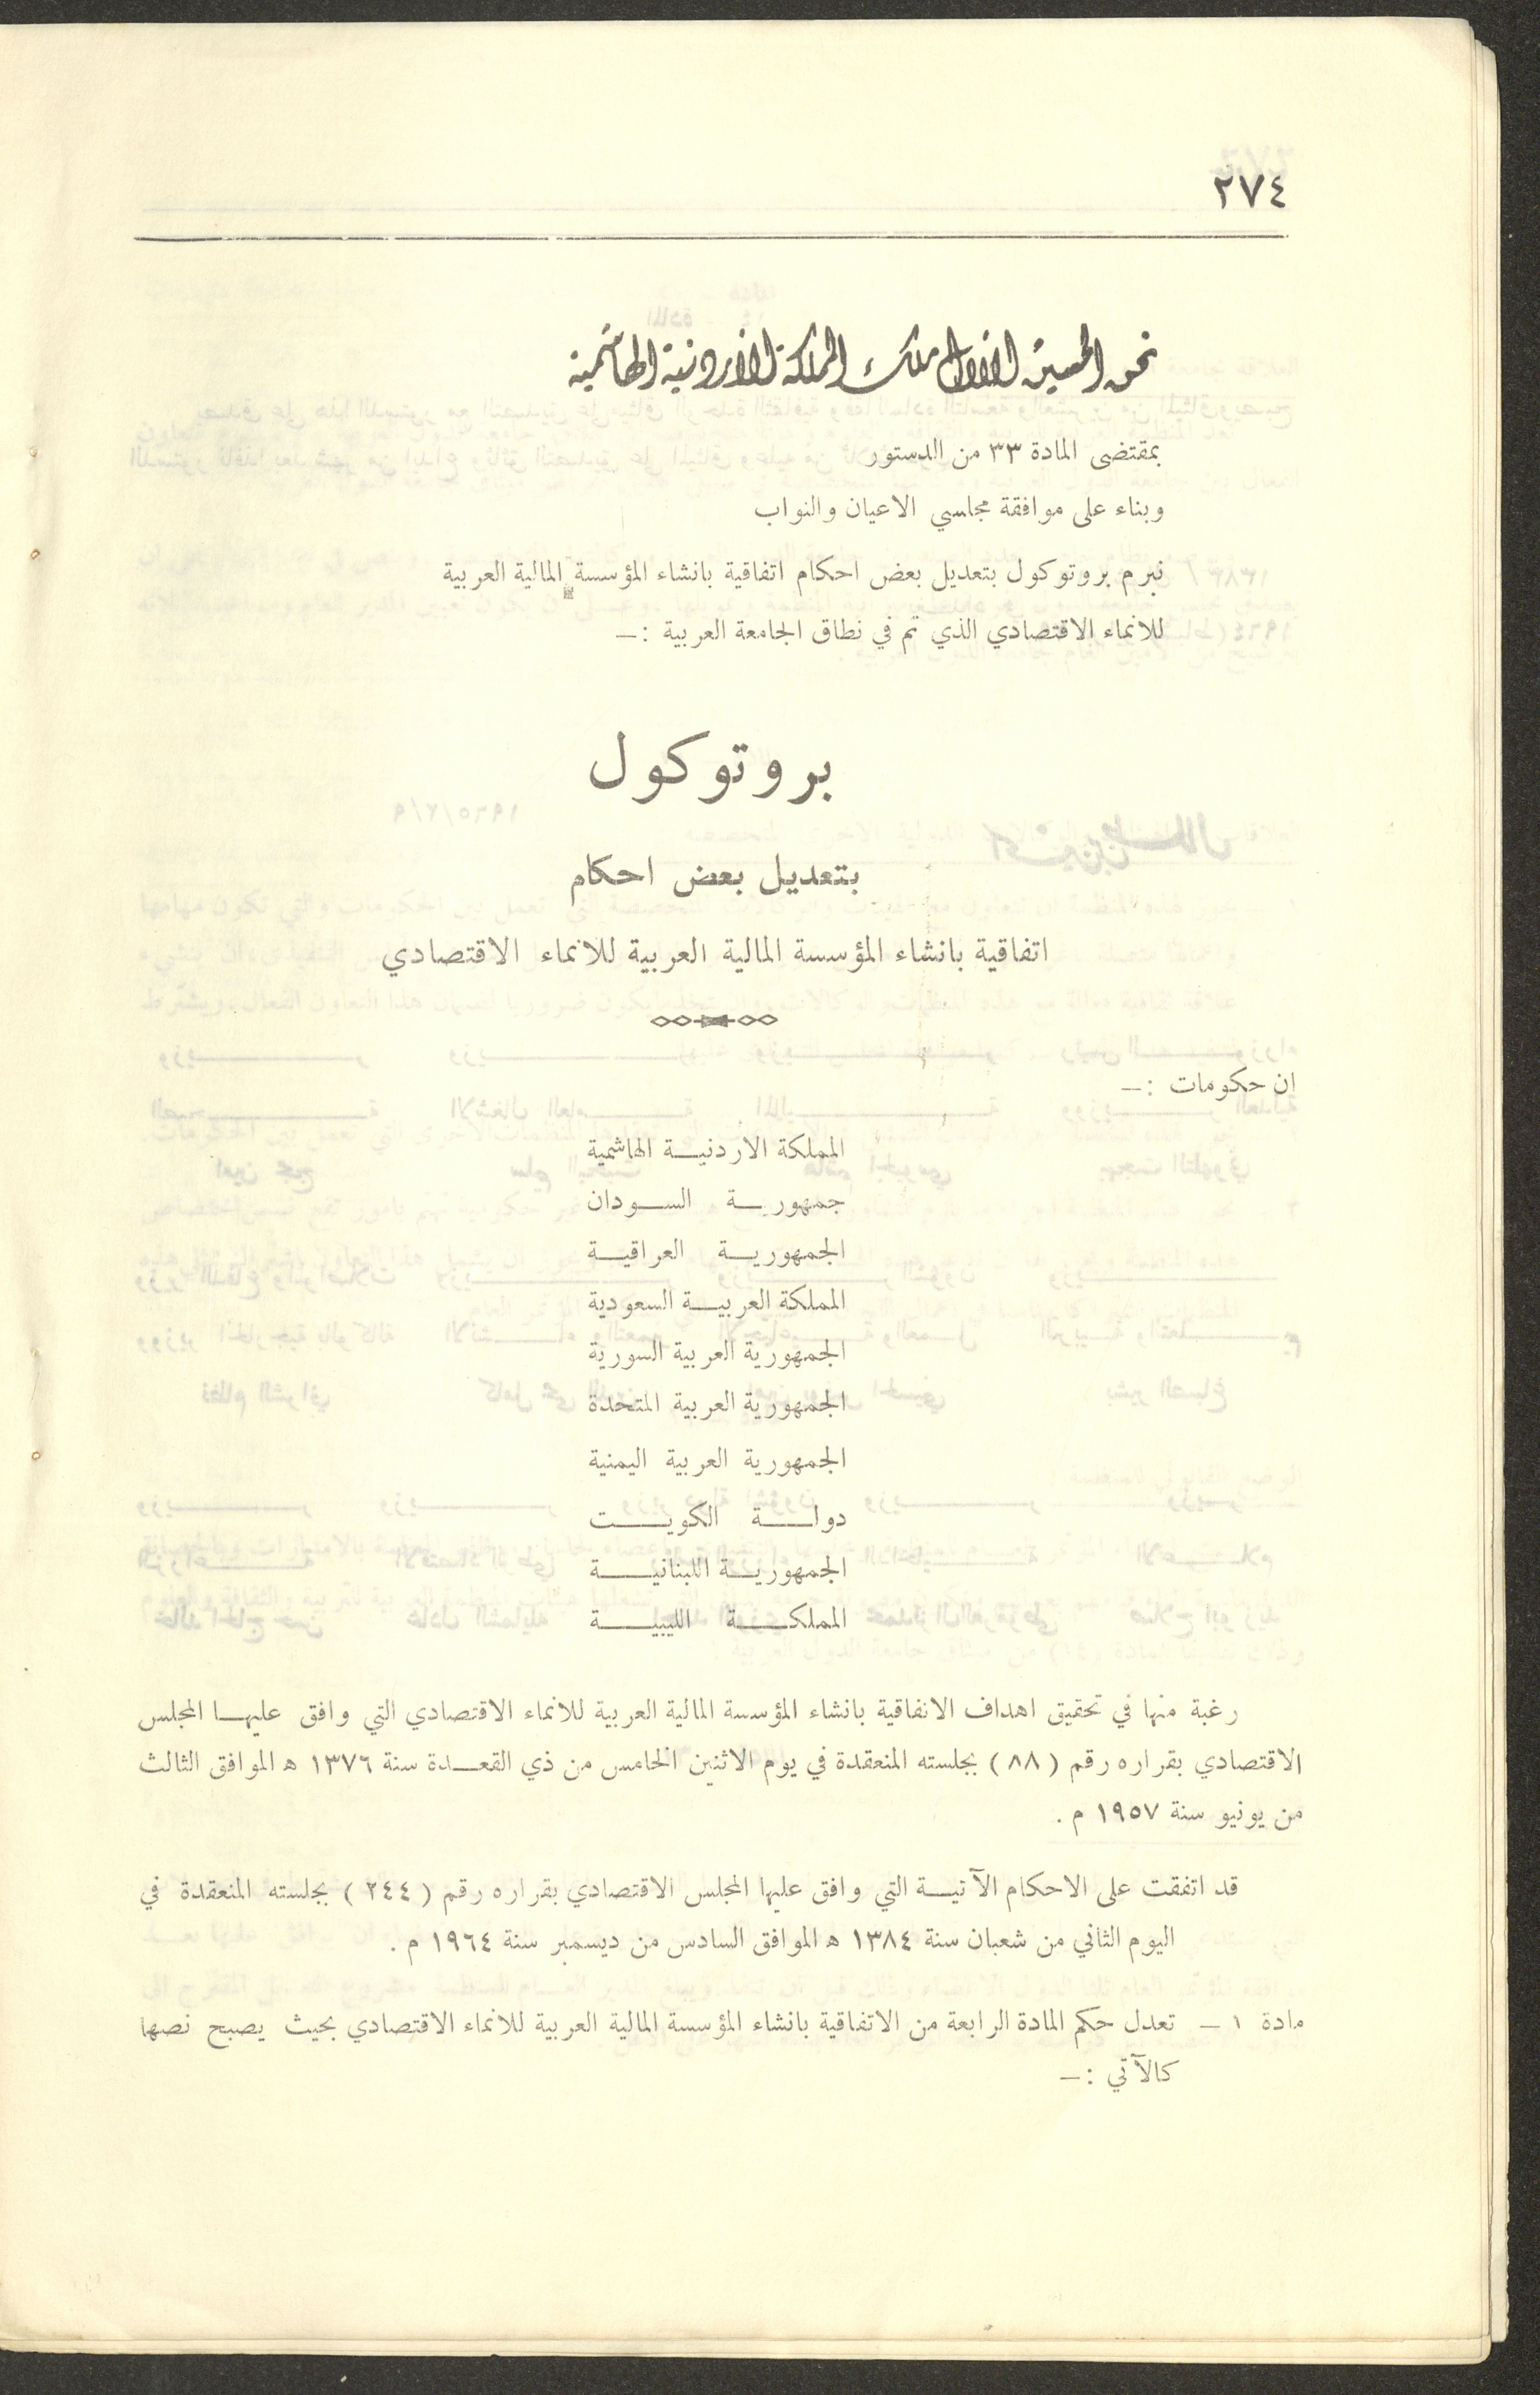 ٢٧٤
نحن الحسين الاول ملك المملكة الاردنية الهاشمية
بمقتضى المادة ٣٣ من الدستور
وبناء على موافقة مجلسي الاعيان والنواب
نبرم بروتوكول بتعديل بعض احكام اتفاقية بانشاء المؤسسة المالية العربية
للانماء الاقتصادي الذي تم في نطاق الجامعة العربية :ـ
بروتوكول
بتعديل بعض احكام
اتفاقية بانشاء المؤسسة المالية العربية للانماء الاقتصادي
ان حكومات :ـ
المملكة الاردنيـة الهاشمية
جمهوريـة السـودان
الجمهوريـة العراقيـة
المملكة العربيـة السعودية
الجمهورية العربية السورية
الجمهورية العربية المتحدة
الجمهورية العربية اليمنية
دولـة الكويـت
الجمهوريـة اللبنانيـة
المملكـة الليبيـة
رغبة منها في تحقيق اهداف الاتفاقية بانشاء المؤسسة المالية العربية للانماء الاقتصادي التي وافق عليهـا المجلس
الاقتصادي بقراره رقم ( ٨٨ ) بجلسته المنعقدة في يوم الاثنين الخامس من ذي القعـدة سنة ١٣٧٦ ه الموافق الثالث
من يونيو سنة ١٩٥٧ م .
قد اتفقت على الاحكام الآتيـة التي وافق عليها المجلس الاقتصادي بقراره رقم ( ٢٤٤ ) بجلسته المنعقدة في
اليوم الثاني من شعبان سنة ١٣٨٤ ه الموافق السادس من ديسمبر سنة ١٩٦٤ م .
مادة ١ ـ تعدل حكم المادة الرابعة من الاتفاقية بانشاء المؤسسة المالية العربية للانماء الاقتصادي بحيث يصبح نصها
كالآتي :ـ